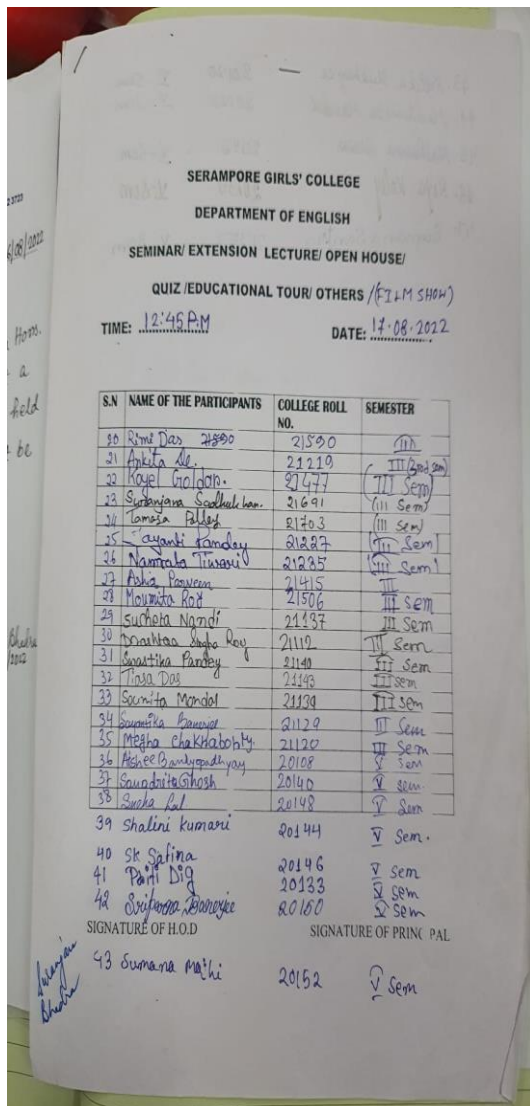 SERAMPORE GIRLS' COLLEGE
DEPARTMENT OF ENGLISH
SEMINAR/ EXTENSION LECTURE/ OPEN HOUSE/
QUIZ /EDUCATIONAL TOUR/ OTHERS /(FILM SHOW)
TIME: 12:45 P.M DATE: 17.08.2022
S.N NAME OF THE PARTICIPANTS COLLEGE ROLL NO. SEMESTER
20 Rimi Das 21590 III
21 Ankita De. 21219 III (3rd sem)
22 Koyel Goldar. 21477 (III Sem)
23 21691 (III Sem)
24 Tamasa 21703 (III Sem)
25 Jayanti Pandey 21227 (III Sem)
26 Namrata Tiwari 21235 (III Sem)
27 Ashia Parveen 21415 III
28 Moumita Roy 21506 III Sem
29 Sucheta Nandi 21137 III Sem
30 Roy 21112 III Sem
31 Swastika Pandey 21140 III Sem
32 Tiasa Das 21143 III sem
33 Soumita Mondal 21139 III sem
34 Banerjee 21129 III Sem
35 Megha Chakraborty 21120 III Sem
36 Aishee Bandyopadhyay 20108 V Sem
37 Soundrita Ghosh 20140 V sem.
38 Sneha Lal 20148 V Sem
39 Shalini Kumari 20144 V Sem.
40 SK Safina 20146 V Sem
41 Dig 20133 V Sem
42 Banerjee 20160 V Sem
SIGNATURE OF H.O.D SIGNATURE OF PRINC PAL
43 Sumana 20152 V Sem
Suranjan
Bhadra
Hons.
a
held
be